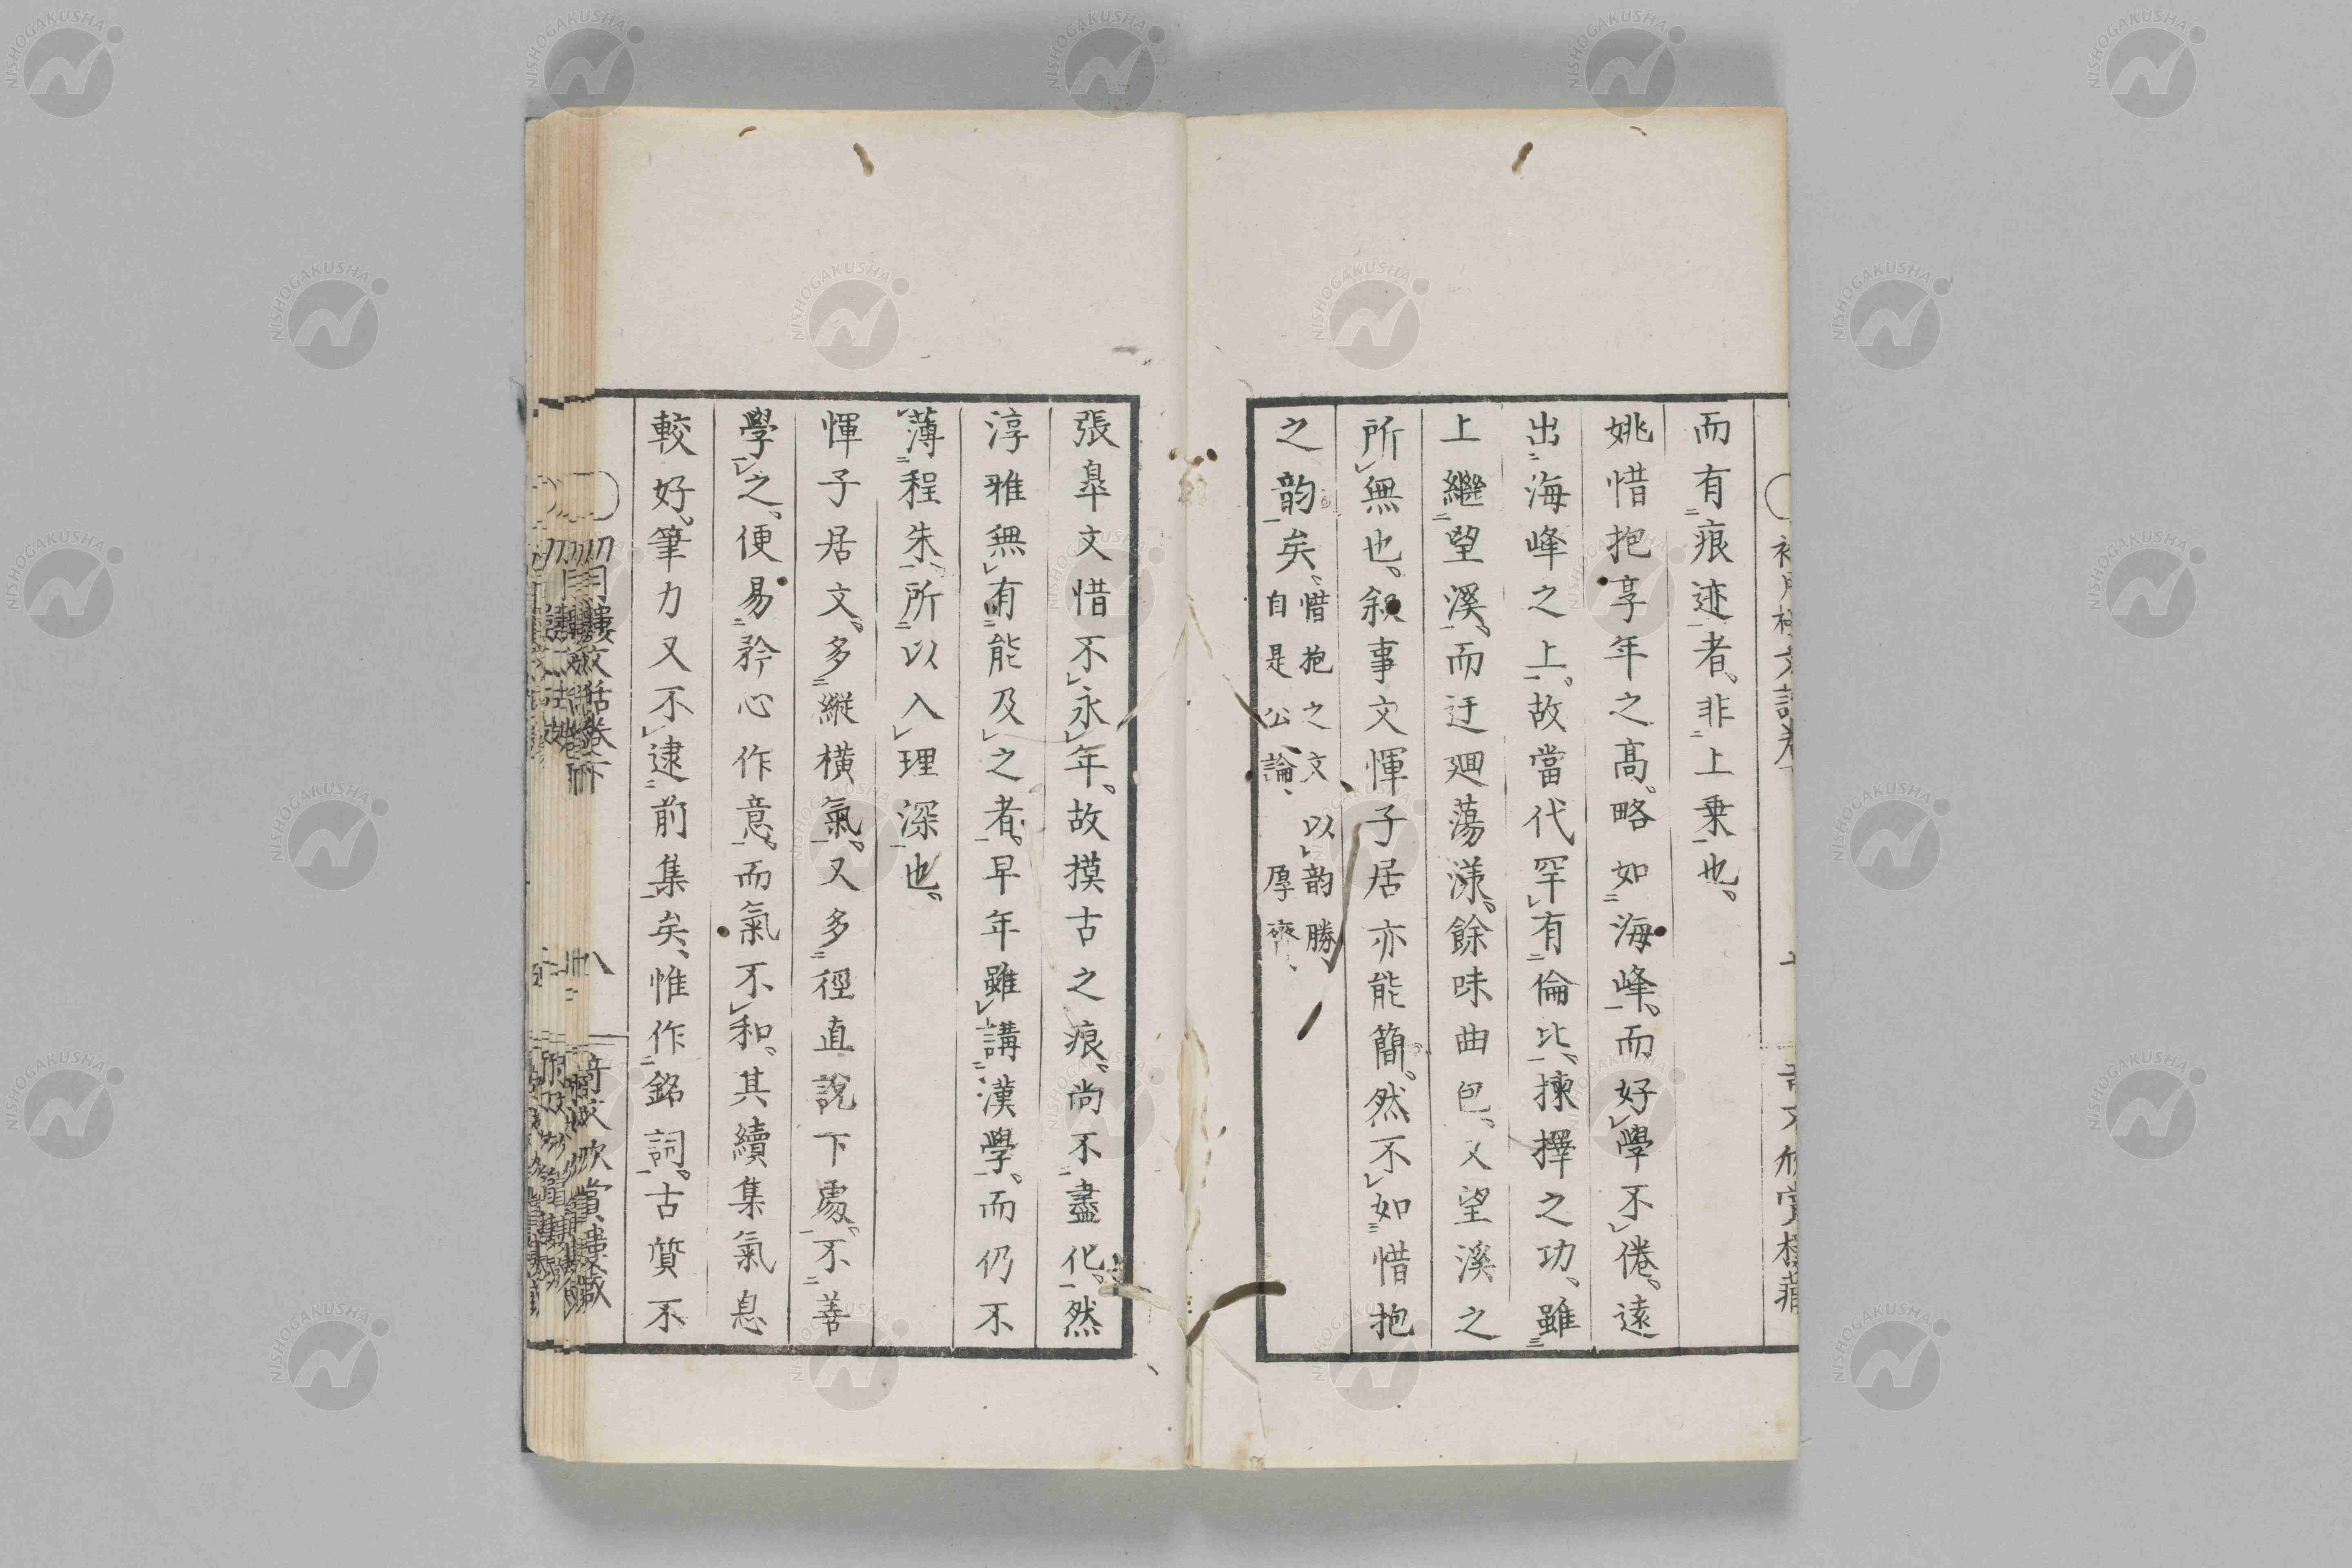 而有痕迹者、非上乗也、
姚惜抱享年之高、略如海峰、而好學不倦、遠
出海峰之上、故當代罕有倫比、揀擇之功、雖
上繼望溪、而迂廻蕩漾、餘味曲包、又望溪之
所無也、叙事文惲子居亦能簡、然不如惜抱
之韵矣、
惜抱之文以韵勝、
自是公論、厚齋、
張皐文惜不永年、故摸古之痕、尚不盡化、然
淳雅無有能及之者、早年雖講漢學、而仍不
薄程朱、所以入理深也、
惲子居文、多縱横氣、又多徑直說下處、不善
學之、便易矜心作意、而氣不和、其續集氣息
較好、筆力又不逮前集矣、惟作銘詞、古質不
八
NISHOGAKUSHA